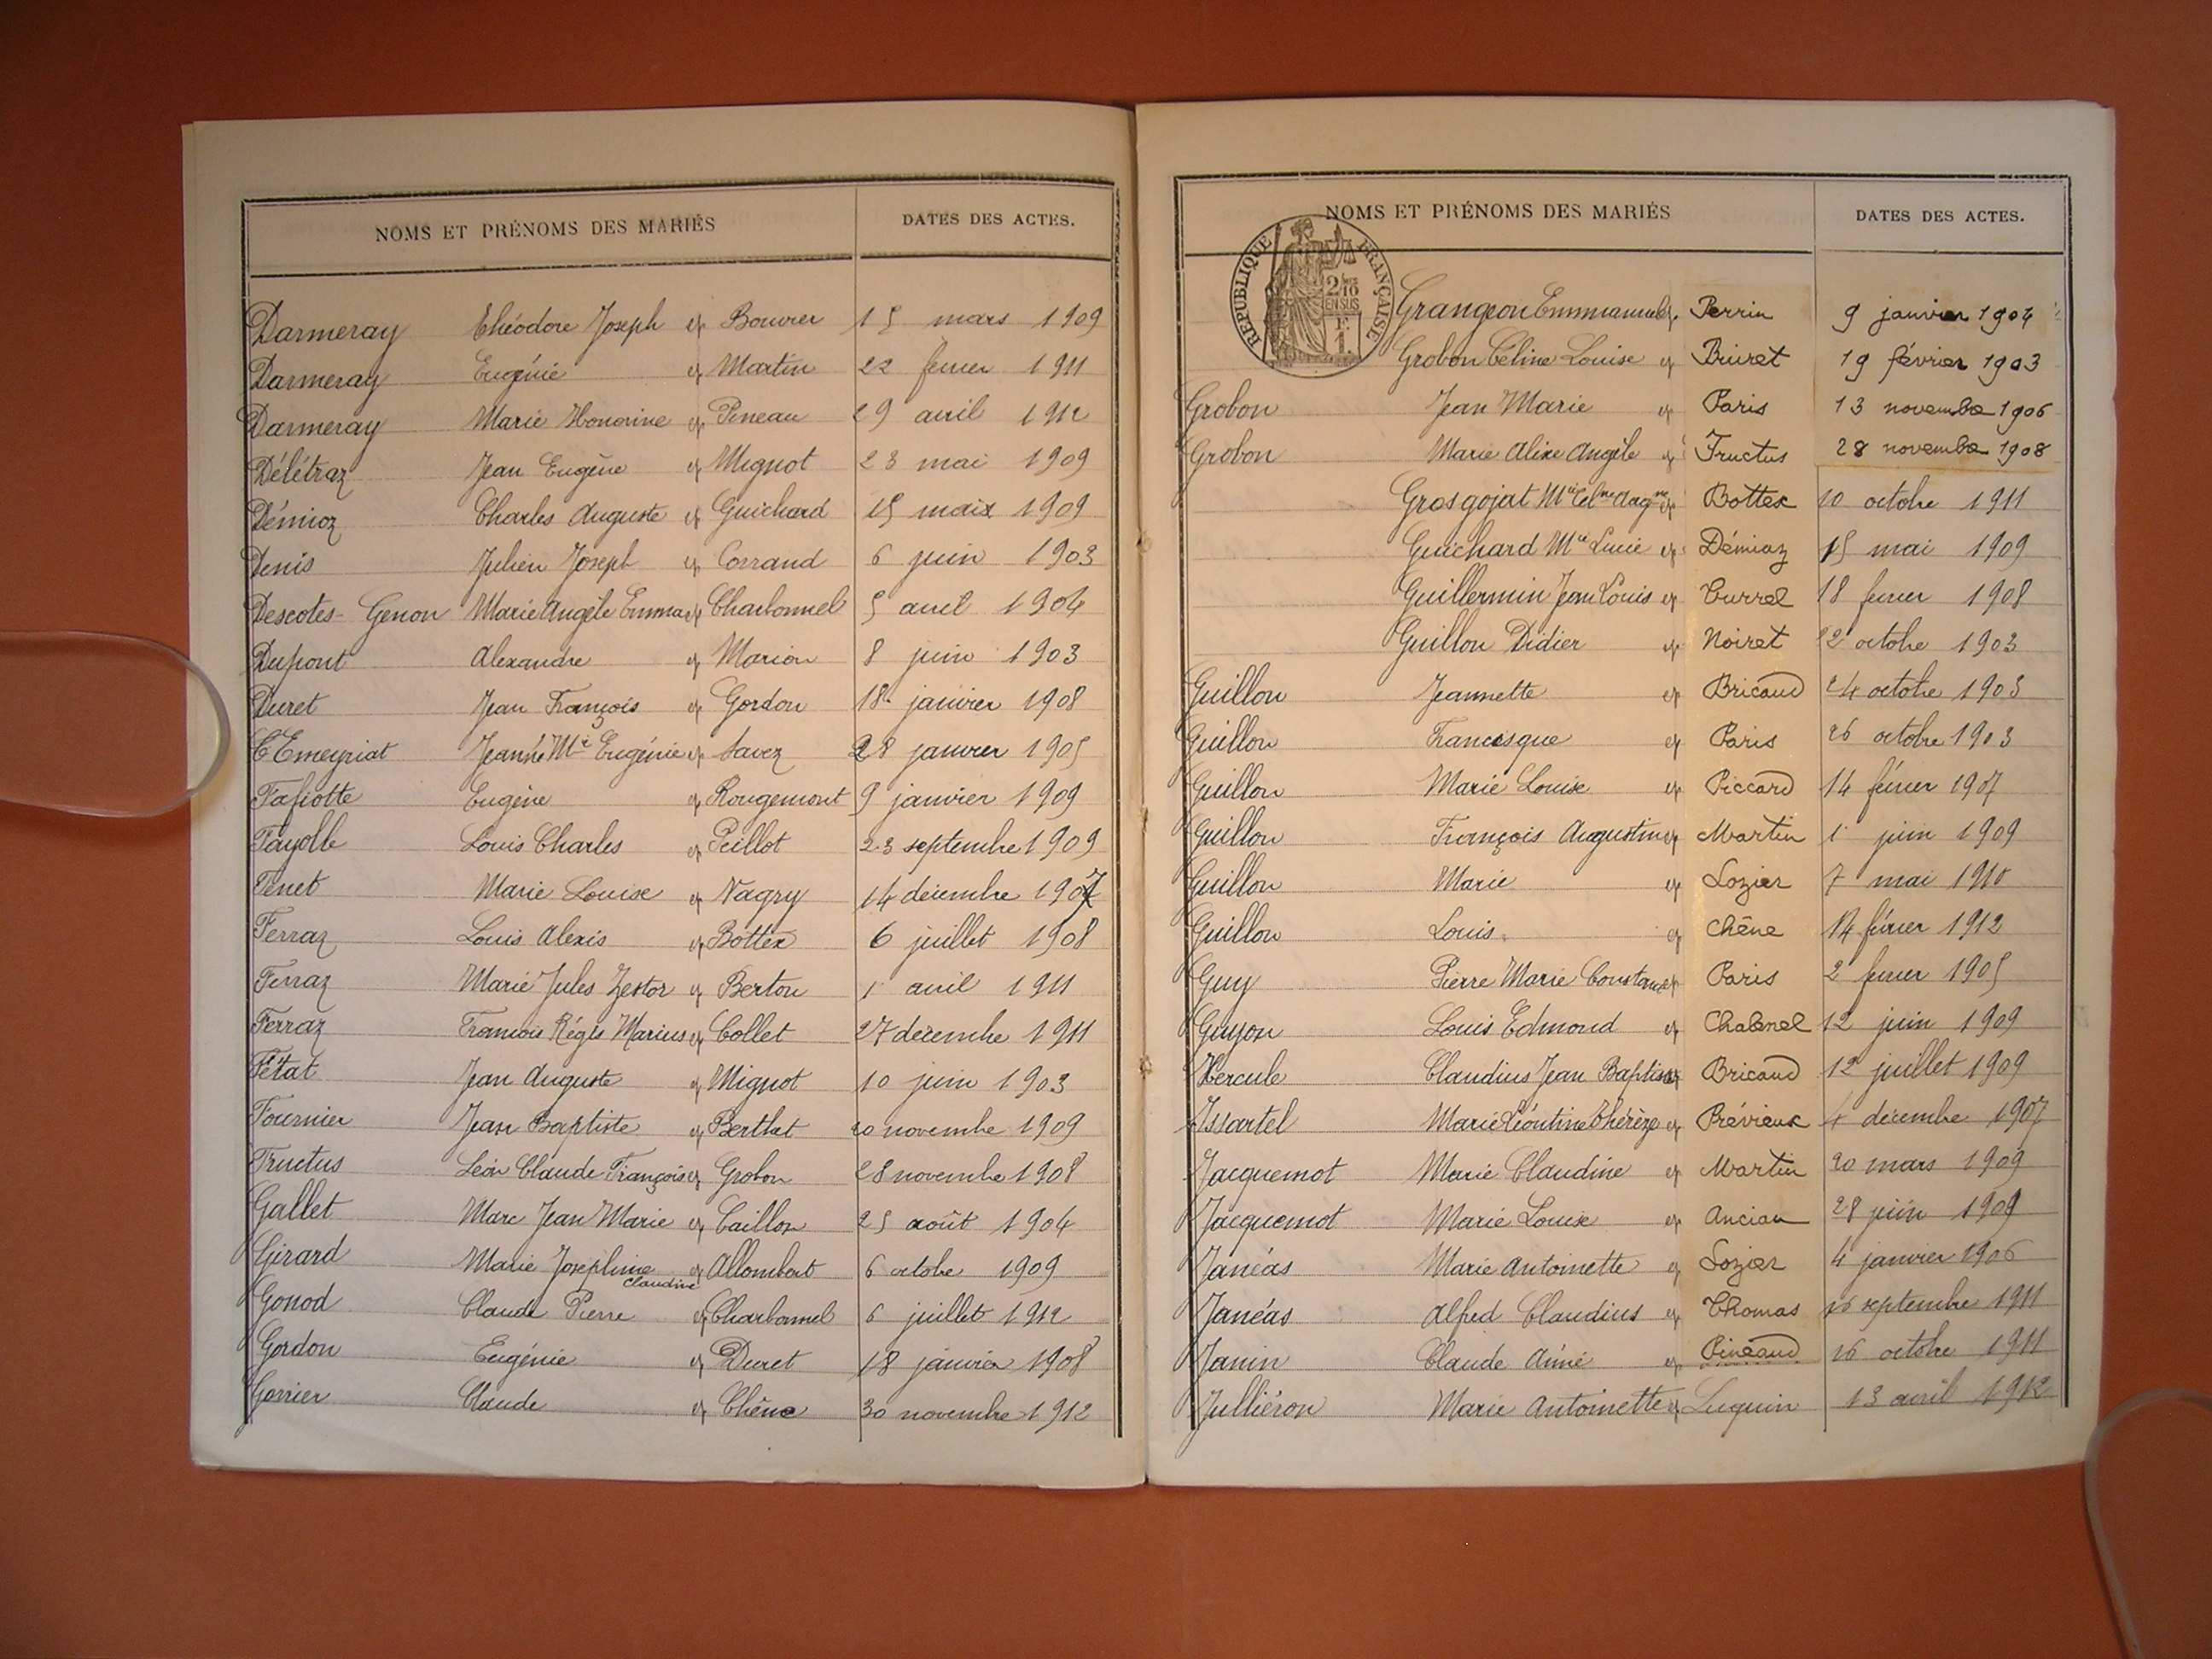 NOMS ET PRÉNOMS DES MARIÉS DATES DES ACTES.
Darmeray Théodore Joseph ép Bouvier 15 mars 1909
Darmeray Eugénie ép Martin 22 fevrier 1911
Darmeray Marie Honorine ép Pineau 29 avril 1912
Délétraz Jean Eugène ép Mignot 23 mai 1909
Démioz Charles Auguste ép Guichard 15 mai 1909
Denis Julien Joseph ép Corrand 6 juin 1903
Descotes-Genon Marie Angèle Emma ép Charbonnel 5 avril 1904
Dupont Alexandre ép Marion 8 juin 1903
Duret Jean François ép Gordon 18 janvier 1908
Emeyriat Jeanne Mie Eugénie ép Savez 28 janvier 1905
Fafiotte Eugène ép Rougemont 9 janvier 1909
Fayolle Louis Charles ép Peillot 23 septembre 1909
Fenet Marie Louise ép Nagry 14 décembre 1907
Ferraz Louis Alexis ép Bottex 6 juillet 1908
Ferraz Marie Jules Zestor ép Berton 1 avril 1911
Ferraz François Régis Marius ép Collet 27 décembre 1911
Fétat Jean Auguste ép Mignot 10 juin 1903
Fournier Jean Baptiste ép Berthet 20 novembre 1909
Fructus Léon Claude François ép Grobon 28 novembre 1908
Gallet Marc Jean Marie ép Caillon 25 août 1904
Girard Marie Joséphine Claudine ép Allombert 6 octobre 1909
Gonod Claude Pierre ép Charbonnel 6 juillet 1912
Gordon Eugénie ép Duret 18 janvier 1908
Gorrier Claude ép Chêne 30 novembre 1912
NOMS ET PRÉNOMS DES MARIÉS DATES DES ACTES.
RÉPUBLIQUE FRANÇAISE
2/10
EN SUS
F.
1.
Grangeon Emmanuel ép. Perrin 9 janvier 1904
Grobon Céline Louise ép Briret 19 février 1903
Grobon Jean Marie ép Paris 13 novembre 1906
Grobon Marie Alixe Angèle ép Fructus 28 novembre 1908
Grosgojat Mie ép Bottex 10 octobre 1911
Guichard Mie Lucie ép Démiaz 15 mai 1909
Guillermin Jean Louis ép Curral 18 fevrier 1908
Guillon Didier ép Noiret 12 octobre 1903
Guillon Jeannette ép Bricaud 24 octobre 1903
Guillon Francisque ép Paris 26 octobre 1903
Guillon Marie Louise ép Piccard 14 février 1907
Guillon François Augustin ép Martin 1 juin 1909
Guillon Marie ép Lozier 7 mai 1910
Guillon Louis ép Chêne 14 février 1912
Guy Pierre Marie Constant ép Paris 2 fevrier 1905
Guyon Louis Edmond ép Chabanel 12 juin 1909
Hercule Claudius Jean Baptiste ép Bricaud 12 juillet 1909
Issartel Marie Léontine Thérèze ép Prévieux 4 décembre 1907
Jacquemot Marie Claudine ép Martin 20 mars 1909
Jacquemot Marie Louise ép Ancian 28 juin 1909
Janéas Marie Antoinette ép Lozier 4 janvier 1906
Janéas Alfred Claudius ép Thomas 16 septembre 1911
Janin Claude Aimé ép Pineaud 26 octobre 1911
Julliéron Marie Antoinette ép Luguin 13 avril 1912